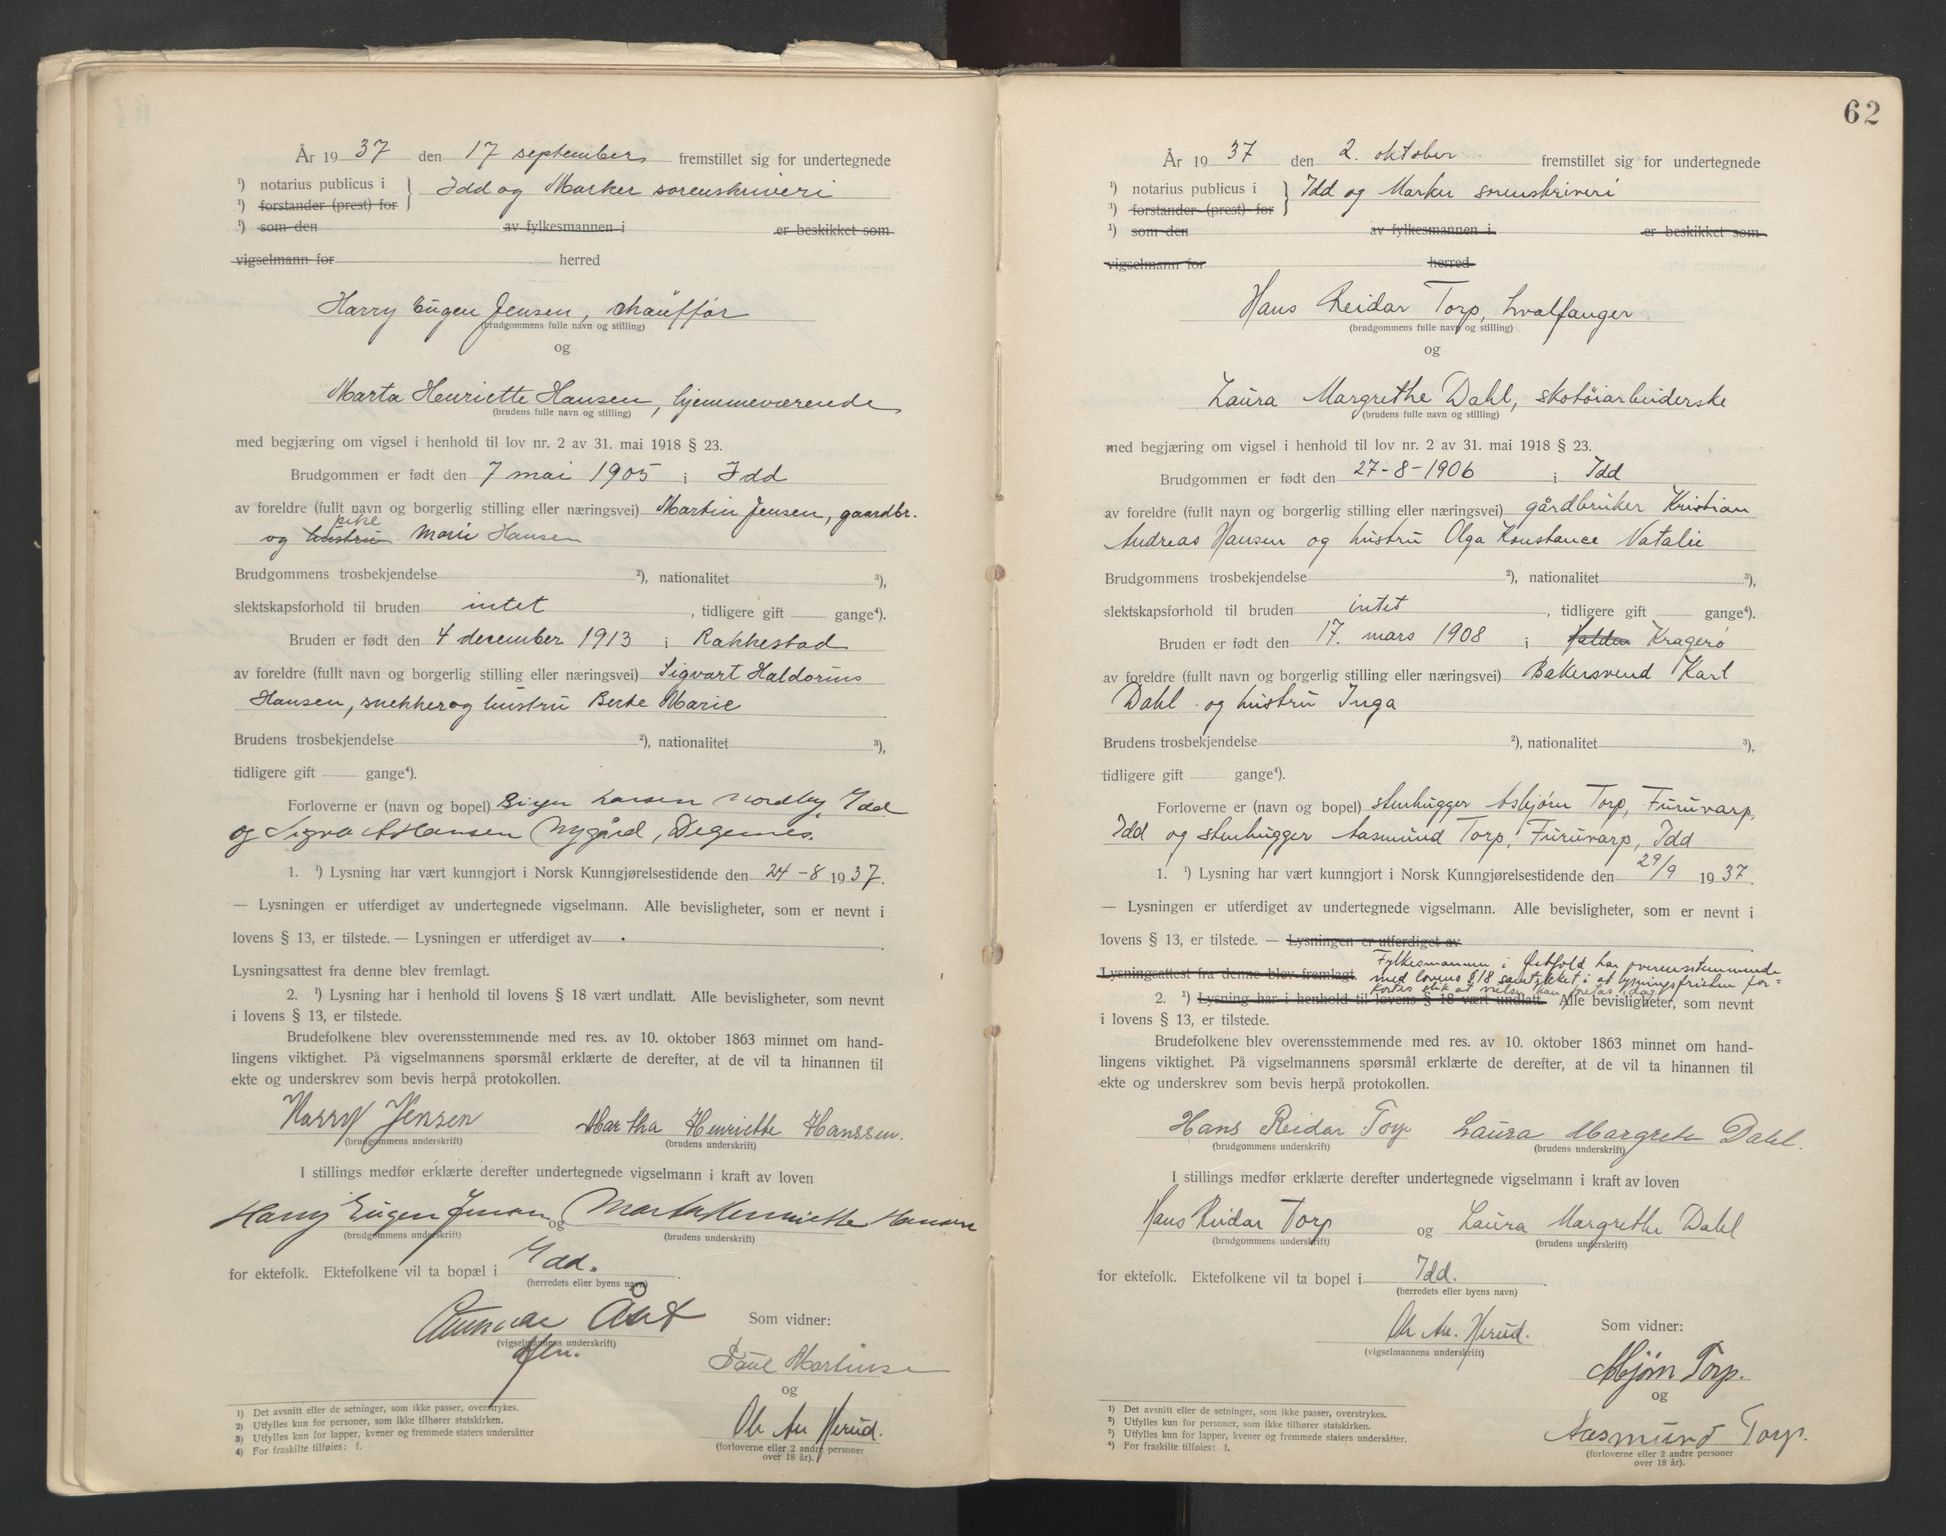 År 1937 den 17 september fremstillet sig for undertegnede
¹) notarius publicus i } Idd og Marker sorenskriveri
¹) forstander (prest) for
¹) som den av fylkesmannen i er beskikket som
vigselmann for herred
Harry Eugen Jensen, chauffør
(brudgommens fulle navn og stilling)
og
Marta Henriette Hansen, hjemmeværende
(brudens fulle navn og stilling)
med begjæring om vigsel i henhold til lov nr. 2 av 31. mai 1918 § 23.
Brudgommen er født den 7 mai 1905 i Idd
av foreldre (fullt navn og borgerlig stilling eller næringsvei) Martin Jensen, gaardbr.
pike
og hustru Marie Hansen
Brudgommens trosbekjendelse ²), nationalitet ³),
slektskapsforhold til bruden intet, tidligere gift gange⁴).
Bruden er født den 4 december 1913 i Rakkestad
av foreldre (fullt navn og borgerlig stilling eller næringsvei) Sigvart Haldorius
Hansen, snekker og hustru Berte Marie
Brudens trosbekjendelse ²), nationalitet ³),
tidligere gift gange⁴).
Forloverne er (navn og bopel) Birger Larsen Nordby, Idd
og Hansen Nygård, Degernes.
1. ¹) Lysning har vært kunngjort i Norsk Kunngjørelsestidende den 24-8 1937.
— Lysningen er utferdiget av undertegnede vigselmann. Alle bevisligheter, som er nevnt i
lovens § 13, er tilstede. — Lysningen er utferdiget av
Lysningsattest fra denne blev fremlagt.
2. ¹) Lysning har i henhold til lovens § 18 vært undlatt. Alle bevisligheter, som nevnt
i lovens § 13, er tilstede.
Brudefolkene blev overensstemmende med res. av 10. oktober 1863 minnet om hand-
lingens viktighet. På vigselmannens spørsmål erklærte de derefter, at de vil ta hinannen til
ekte og underskrev som bevis herpå protokollen.
Harry Jensen Martha Henriette Hanssen.
(brudgommens underskrift) (brudens underskrift)
I stillings medfør erklærte derefter undertegnede vigselmann i kraft av loven
Harry Eugen Jensen og Marta Henriette Hansen
(brudgommens underskrift) (brudens underskrift)
for ektefolk. Ektefolkene vil ta bopæl i Idd.
(herredets eller byens navn)
Som vidner:
(vigselmannens underskrift)
Paul Martinsen
og
Ole An Herud.
(forloverne eller 2 andre personer
over 18 år).
1) Det avsnitt eller de setninger, som ikke passer, overstrykes.
2) Utfylles kun for personer, som ikke tilhører statskirken.
3) Utfylles kun for lapper, kvener og fremmede staters undersåtter
4) For fraskilte tilføies: f.
62
År 1937 den 2. oktober fremstillet sig for undertegnede
¹) notarius publicus i } Idd og Marker sorenskriveri
¹) forstander (prest) for
¹) som den av fylkesmannen i er beskikket som
vigselmann for herred
Hans Reidar Torp, hvalfanger
(brudgommens fulle navn og stilling)
og
Laura Margrethe Dahl, skotøiarbeiderske
(brudens fulle navn og stilling)
med begjæring om vigsel i henhold til lov nr. 2 av 31. mai 1918 § 23.
Brudgommen er født den 27-8-1906 i Idd
av foreldre (fullt navn og borgerlig stilling eller næringsvei) gårdbruker Kristian
Andreas Hansen og hustru Olga Konstance Natalie
Brudgommens trosbekjendelse ²), nationalitet ³),
slektskapsforhold til bruden intet, tidligere gift gange⁴).
Bruden er født den 17. mars 1908 i Halden Kragerø
av foreldre (fullt navn og borgerlig stilling eller næringsvei) Bakersvend Karl
Dahl og hustru Inga
Brudens trosbekjendelse ²), nationalitet ³),
tidligere gift gange⁴).
Forloverne er (navn og bopel) stenhugger Asbjørn Torp, Furuvarp,
Idd og stenhugger Aasmund Torp, Furuvarp, Idd
1. ¹) Lysning har vært kunngjort i Norsk Kunngjørelsestidende den 29/9 1937.
— Lysningen er utferdiget av undertegnede vigselmann. Alle bevisligheter, som er nevnt i
lovens § 13, er tilstede. — Lysningen er utferdiget av
Fylkesmannen i Østfold har overensstemmende
Lysningsattest fra denne blev fremlagt. med lovens § 18 samtykket i at lysningsfristen for-
kortes slik at vielsen kan foretas idag.
2. ¹) Lysning har i henhold til lovens § 18 vært undlatt. Alle bevisligheter, som nevnt
i lovens § 13, er tilstede.
Brudefolkene blev overensstemmende med res. av 10. oktober 1863 minnet om hand-
lingens viktighet. På vigselmannens spørsmål erklærte de derefter, at de vil ta hinannen til
ekte og underskrev som bevis herpå protokollen.
Hans Reidar Torp Laura Margrete Dahl.
(brudgommens underskrift) (brudens underskrift)
I stillings medfør erklærte derefter undertegnede vigselmann i kraft av loven
Hans Reidar Torp og Laura Margrethe Dahl
(brudgommens underskrift) (brudens underskrift)
for ektefolk. Ektefolkene vil ta bopel i Idd.
(herredets eller byens navn)
Ole An. Herud. Som vidner:
(vigselmannens underskrift)
Asbjørn Torp.
og
Aasmund Torp.
(forloverne eller 2 andre personer
over 18 år).
¹) Det avsnitt eller de setninger, som ikke passer, overstrykes.
²) Utfylles kun for personer, som ikke tilhører statskirken.
³) Utfylles kun for lapper, kvener og fremmede staters undersåtter.
⁴) For fraskilte tilføies: f.